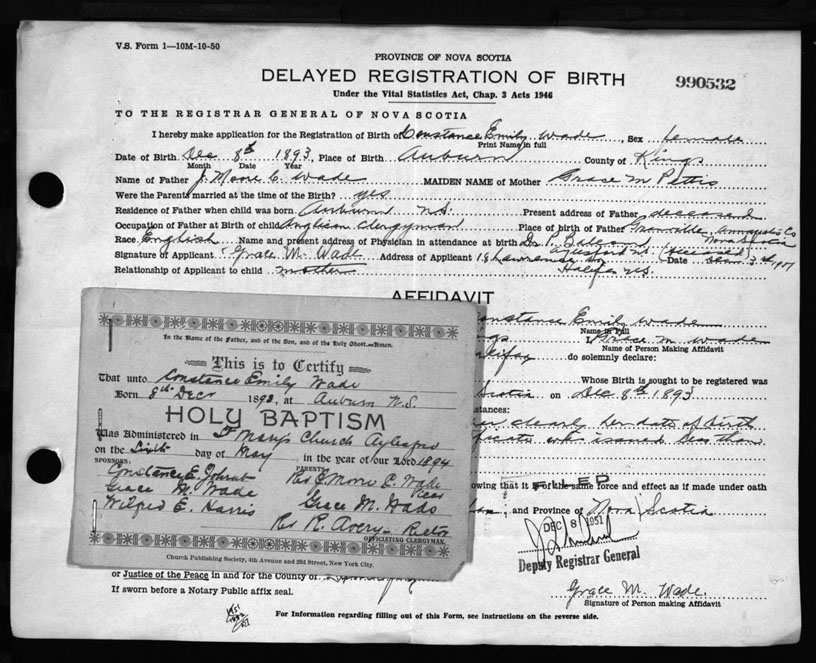 V.S. Form 1—10M-10-50
PROVINCE OF NOVA SCOTIA
DELAYED REGISTRATION OF BIRTH
990532
Under the Vital Statistics Act, Chap. 3 Acts 1946
TO THE REGISTRAR GENERAL OF NOVA SCOTIA
I hereby make application for the Registration of Birth of Constance Emily Wade Sex female
Print Name in full
Date of Birth Dec 8th 1893, Place of Birth Auburn County of Kings
Month Date Year
Name of Father J. Moore C. Wade MAIDEN NAME of Mother Grace M Pettis
Were the Parents married at the time of the Birth? yes
Residence of Father when child was born Auburn N.S. Present address of Father deceased
Occupation of Father at Birth of child Anglican Clergyman Place of birth of Father Granville, Annapolis Co
Race English Name and present address of Physician in attendance at birth Dr. P. Nova Scotia
Aylesford N.S. (deceased)
Signature of Applicant Grace M. Wade Address of Applicant 18 Lawrence Date 3rd
Relationship of Applicant to child mother Halifax N.S.
AFFIDAVIT
Constance Emily Wade
Name in Full
I, Grace M. Wade
Name of Person Making Affidavit
Halifax do solemnly declare:
Whose Birth is sought to be registered was
Scotia on Dec 8th 1893
clearly her date of birth
who issued less than
owing that it of the same force and effect as if made under oath
and Province of Nova Scotia
DEC 8 1951
Deputy Registrar General
or Justice of the Peace in and for the County of
If sworn before a Notary Public affix seal.
Grace M. Wade.
Signature of Person making Affidavit
For Information regarding filling out of this Form, see instructions on the reverse side.
In the Name of the Father, and of the Son, and of the Holy Ghost.—Amen.
This is to Certify
That unto Constance Emily Wade
Born 8th Decr 1893, at Auburn N.S.
HOLY BAPTISM
Was Administered in St Mary's Church Aylesford
on the Sixth day of May in the year of our Lord 1894
SPONSORS, PARENTS,
Constance E. Johnst Rev J. Moore C. Wade
Grace M. Wade Grace M. Wade
Wilfred E. Harris
Rev R. Avery - Rector
OFFICIATING CLERGYMAN.
Church Publishing Society, 4th Avenue and 22d Street, New York City.